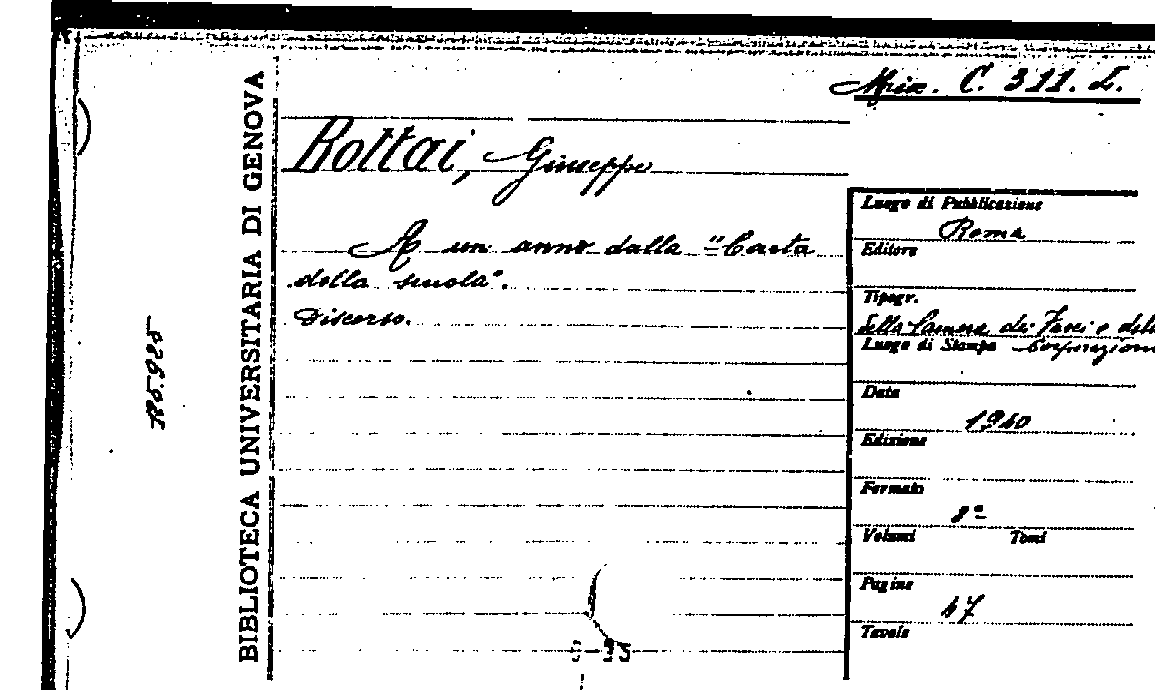 Misc. C. 311. 2.
BIBLIOTECA UNIVERSITARIA DI GENOVA
Bottai, Giuseppe
A un anno dalla "Carta
della scuola".
Discorso.
Luogo di Pubblicazione
Roma
Editore
Tipogr.
della Camera dei Fasci e delle
Luogo di Stampa Corporazioni
Data
1940
Edizione
Formato
8º
Volumi Tomi
Pagine
47
Tavole